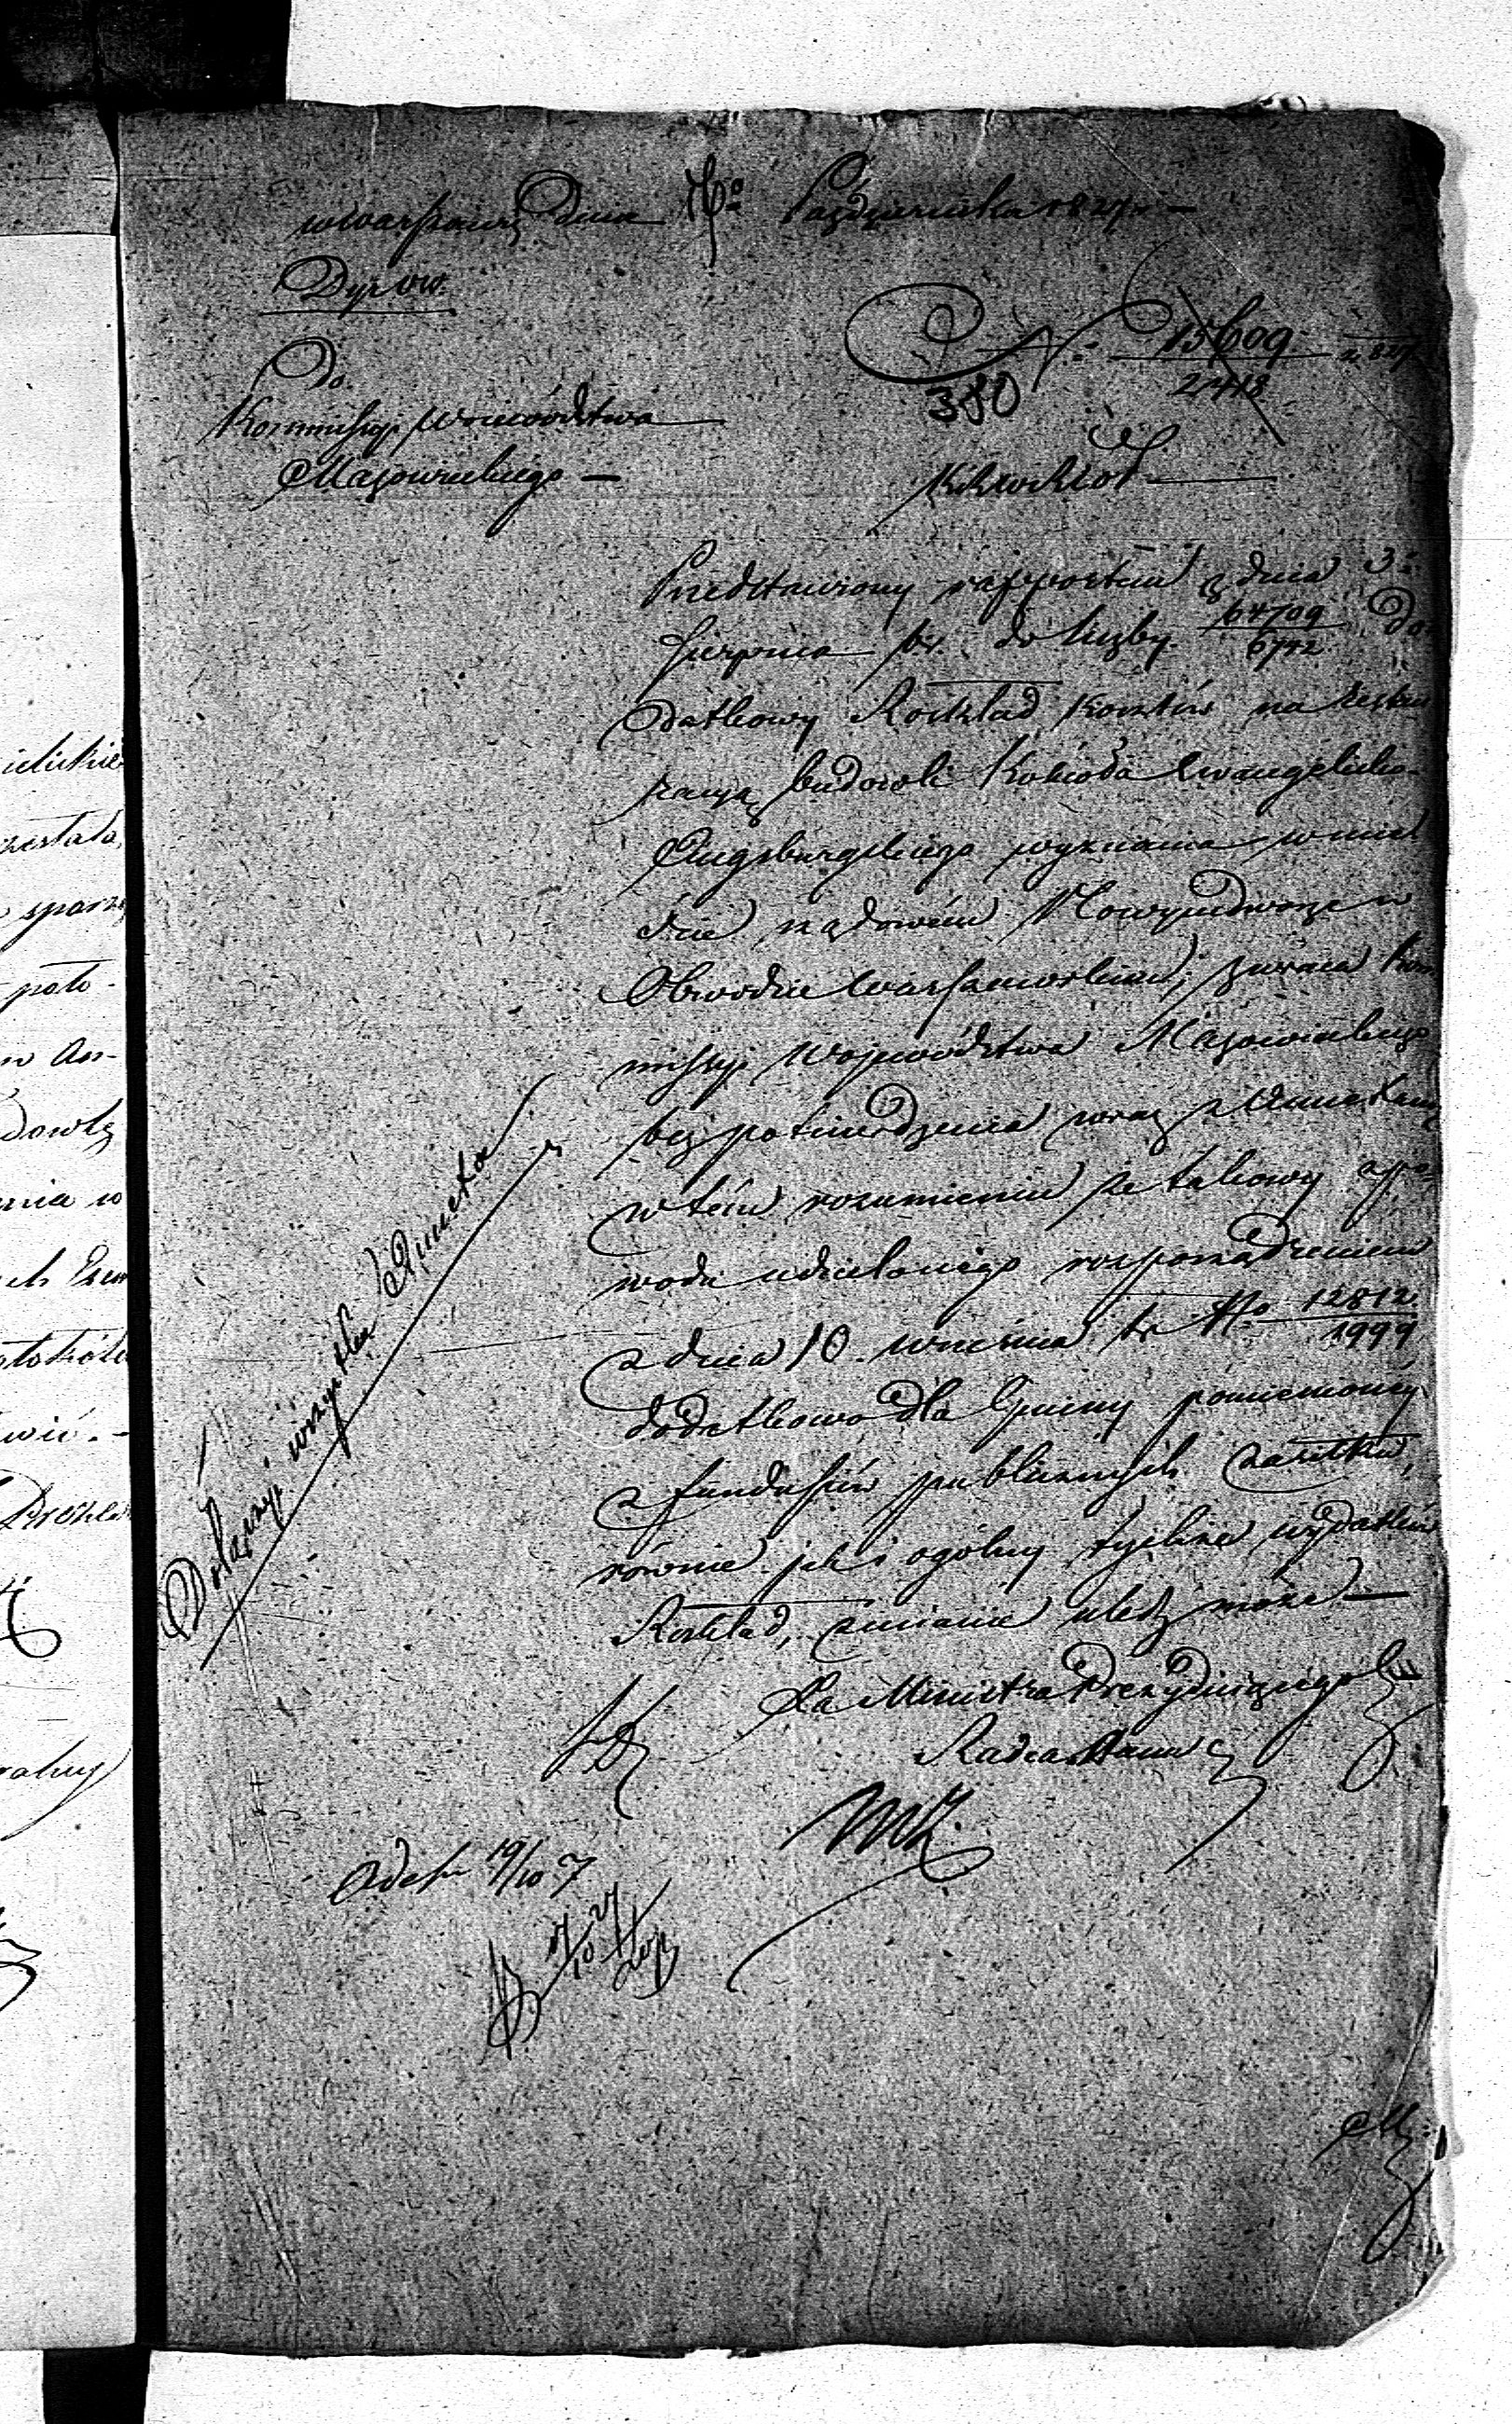 w Warszawie Dnia 16º Października 1827 —
Dyr. W.
N: 15609 / 2418 z 827
380
Do
Kommissyi Woiewództwa
Mazowieckiego —
Przedstawiony rapportem z dnia 3º
Sierpnia br. do liczby 64709 / 6742 Do-
datkowy Rozkład kosztów na restau
racyą budowli Kościoła Ewangelicko-
Augsburgskiego wyznania w mie
ście rządowém Nowymdworze w
Obwodzie Warszawskim; zwraca Kom
missyi Województwa Mazowieckiego
bez potwierdzenia wraz z Annexami
w tém rozumieniu że takowy z po-
wodu udzielonego rozporządzeniem
z dnia 10. września br No 12812 / 1999
dodatkowo dla Gminy pomienioney
z funduszów publicznych zasiłku,
równie jak i ogólny tychże wydatków
Rozkład, zmianie uledz może —
Za Ministra Prezydującego
Radca Stanu
Dołączyć wszystkie Annexa
19/10 7
17/10 27